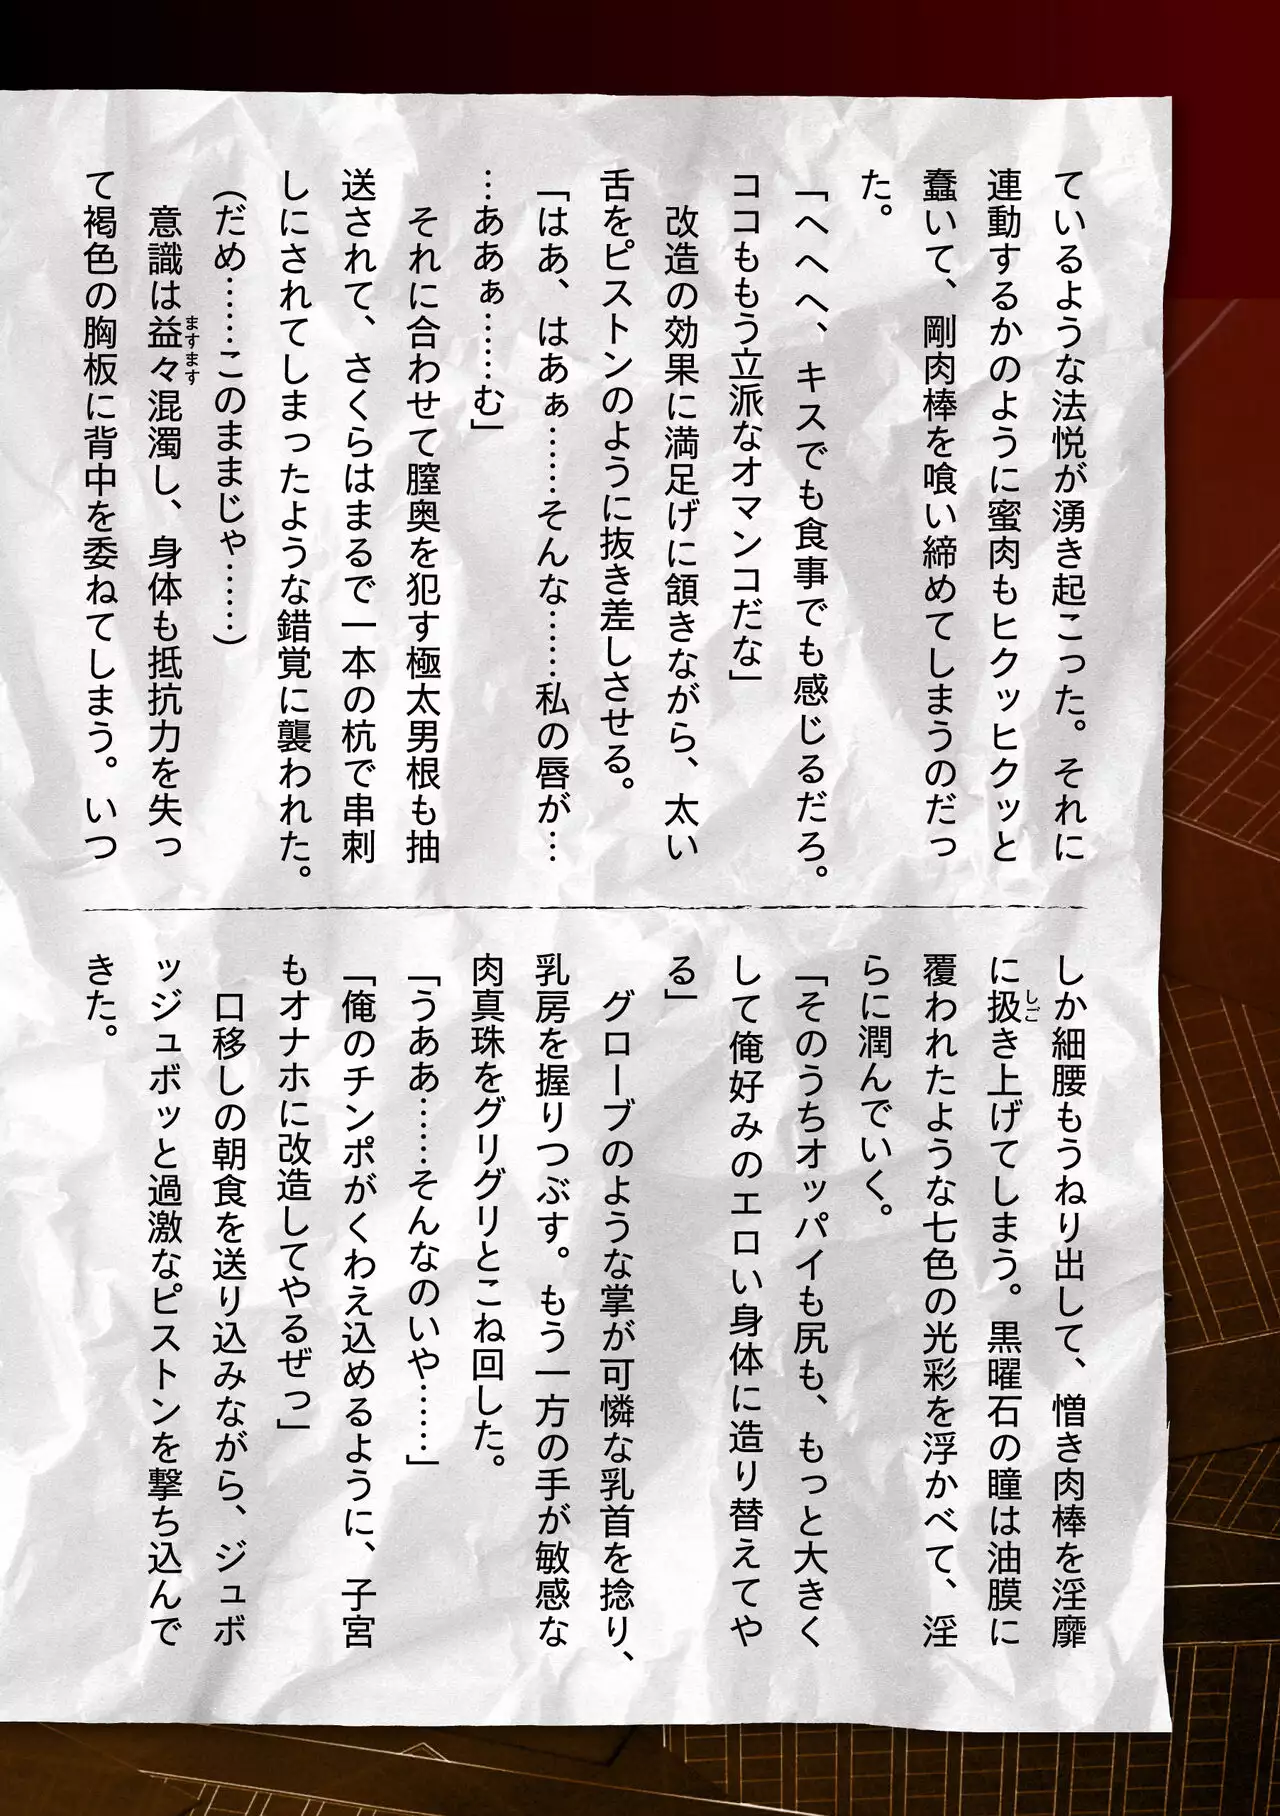 ているような法悦が湧き起こった。それに
連動するかのように蜜肉もヒクッヒクッと
蠢いて、剛肉棒を喰い締めてしまうのだっ
た。
「へへへ、キスでも食事でも感じるだろ。
ココももう立派なオマンコだな」
　改造の効果に満足げに頷きながら、太い
舌をピストンのように抜き差しさせる。
「はあ、はあぁ……そんな……私の唇が…
…ああぁ……む」
　それに合わせて膣奥を犯す極太男根も抽
送されて、さくらはまるで一本の杭で串刺
しにされてしまったような錯覚に襲われた。
（だめ……このままじゃ……）
　意識は益々混濁し、身体も抵抗力を失っ
ますます
て褐色の胸板に背中を委ねてしまう。いつ
しか細腰もうねり出して、憎き肉棒を淫靡
に扱き上げてしまう。黒曜石の瞳は油膜に
しご
覆われたような七色の光彩を浮かべて、淫
らに潤んでいく。
「そのうちオッパイも尻も、もっと大きく
して俺好みのエロい身体に造り替えてや
る」
　グローブのような掌が可憐な乳首を捻り、
乳房を握りつぶす。もう一方の手が敏感な
肉真珠をグリグリとこね回した。
「うああ……そんなのいや……」
「俺のチンポがくわえ込めるように、子宮
もオナホに改造してやるぜっ」
　口移しの朝食を送り込みながら、ジュボ
ッジュボッと過激なピストンを撃ち込んで
きた。